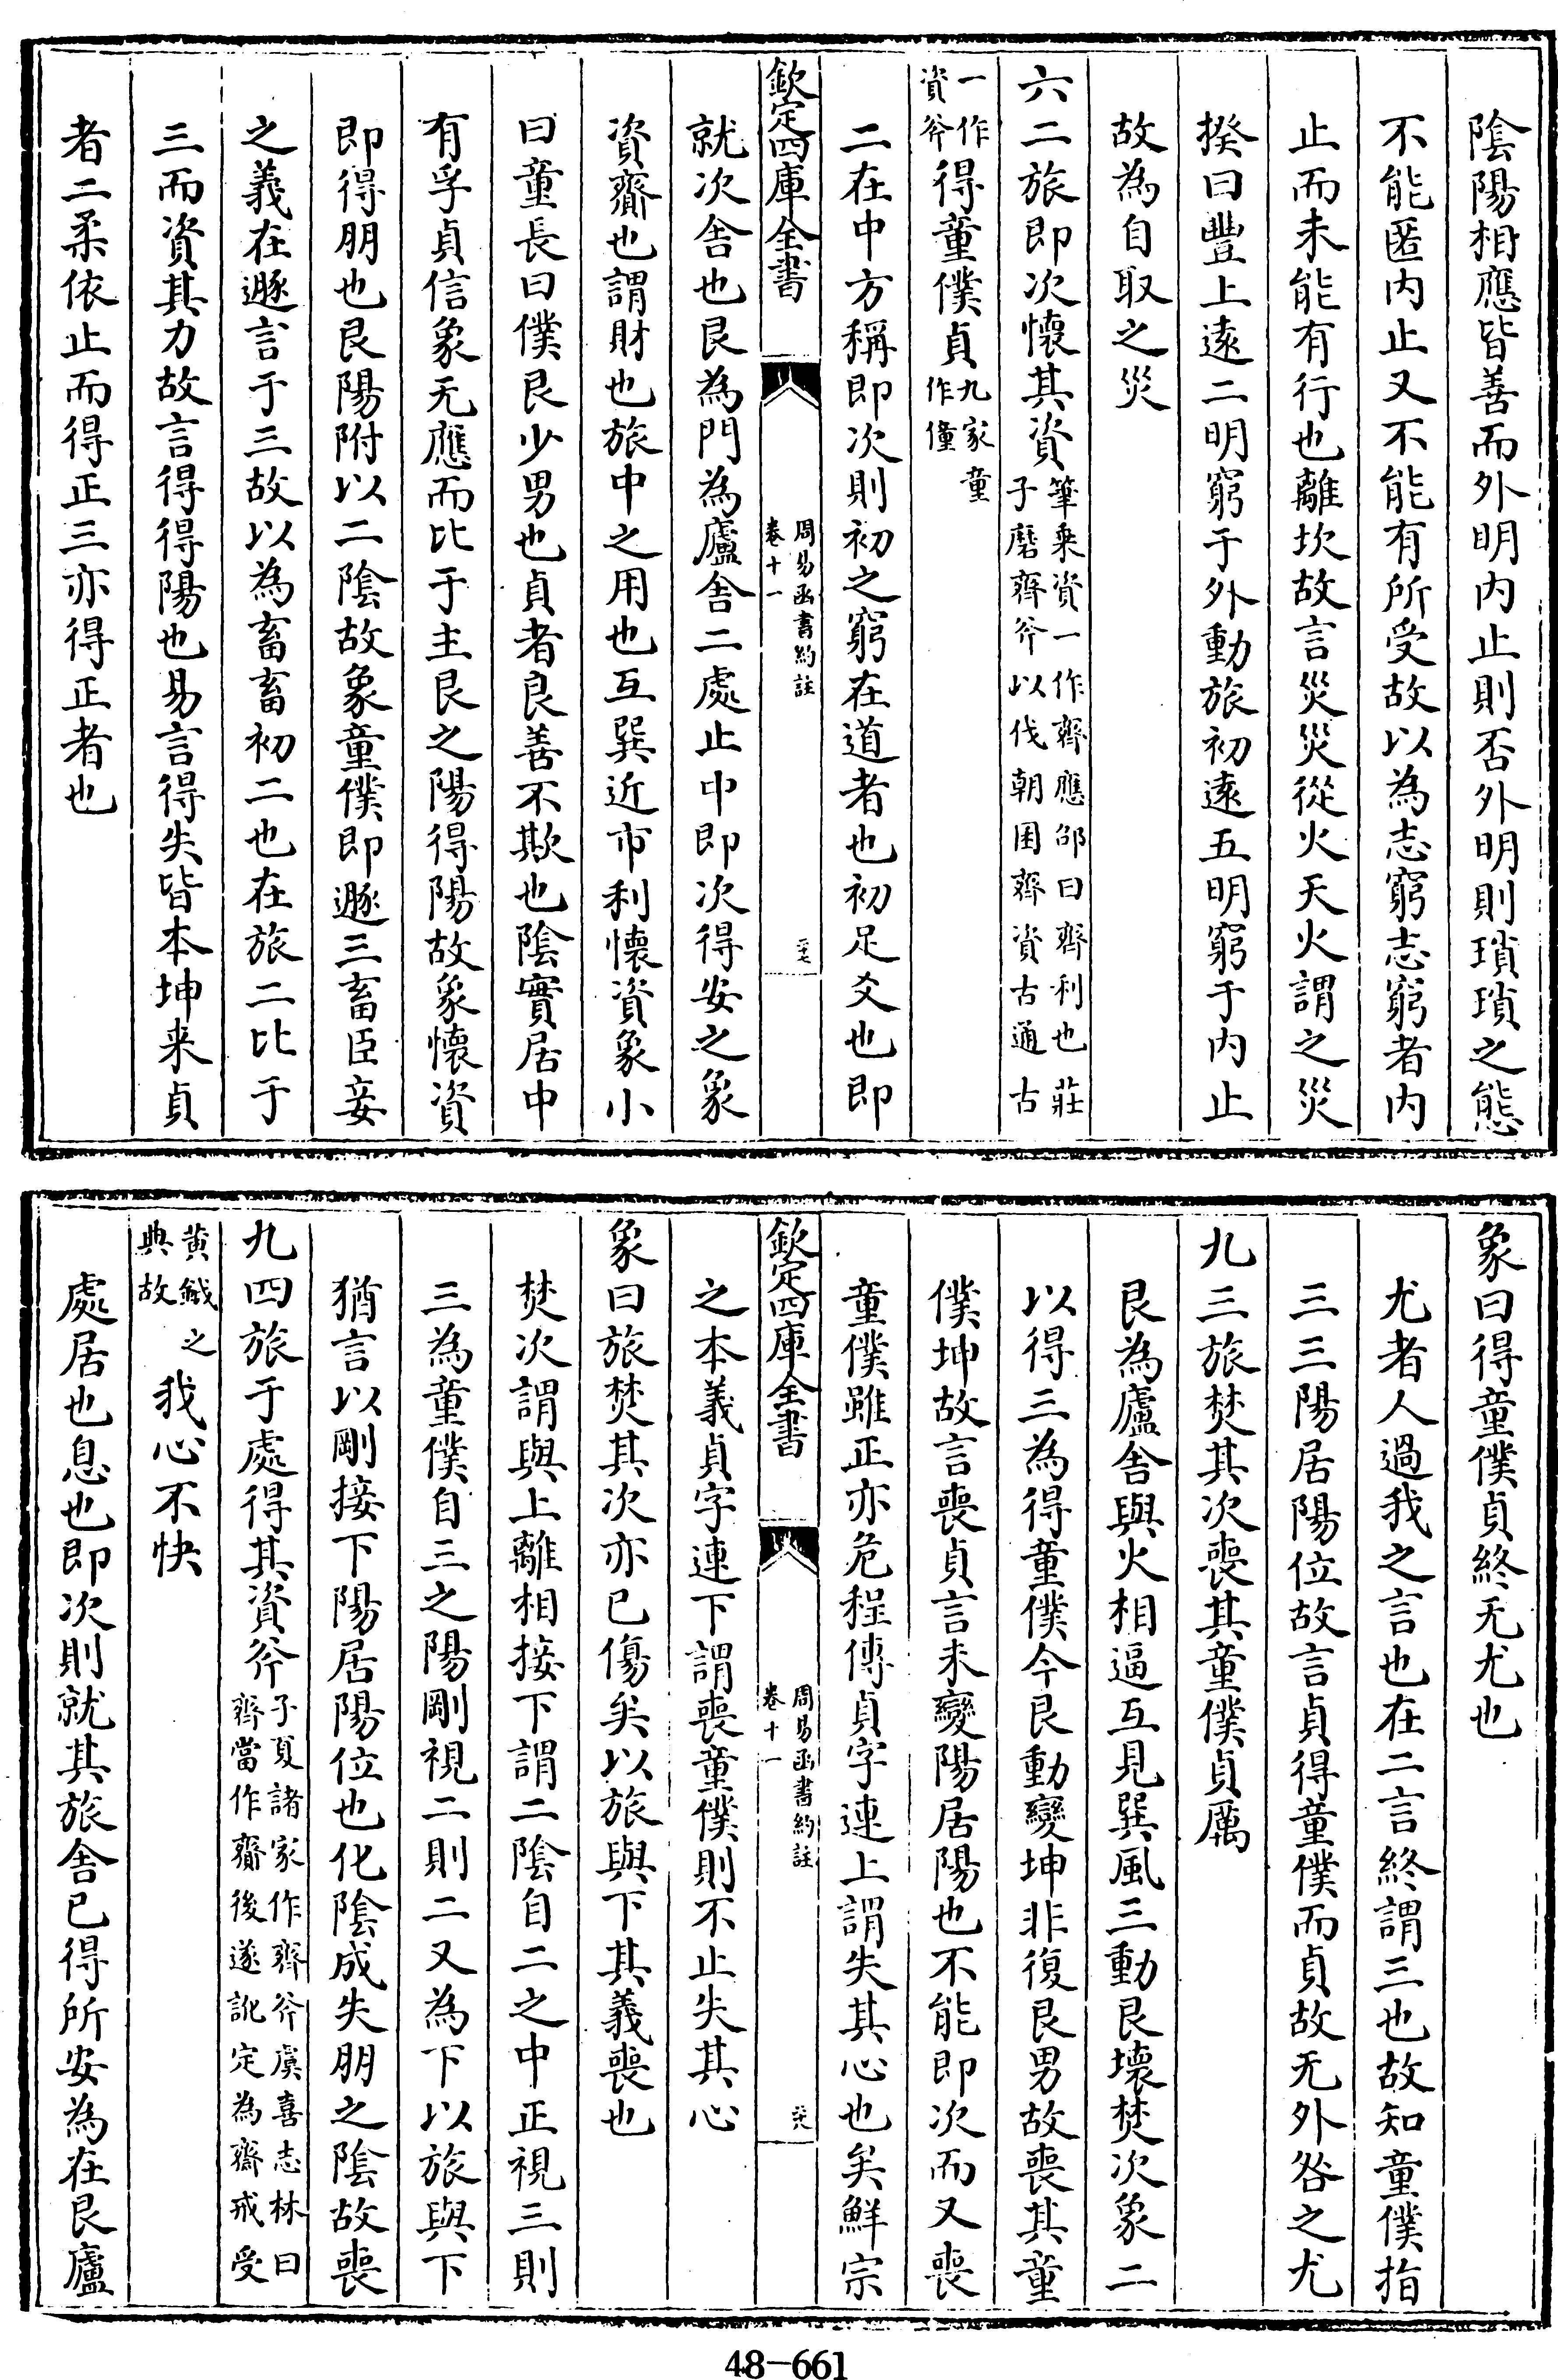 陰陽相應皆善而外明内止則否外明則瑣瑣之態
不能匿内止又不能有所受故以為志窮志窮者内
止而未能有行也離坎故言災災從火天火謂之災
揆曰豐上遠二明窮于外動旅初遠五明窮于内止
故為自取之災
六二旅即次懷其資筆乘資一作齊應邵曰齊利也莊
子磨齊斧以伐朝困齊資古通古
一作
資斧得童僕貞九家童
作僮
二在中方稱即次則初之窮在道者也初足爻也即
欽定四庫全書
周易函書約註
卷十一
三七
就次舍也艮為門為廬舍二處止中即次得安之象
資齎也謂財也旅中之用也互巽近市利懷資象小
曰童長曰僕艮少男也貞者良善不欺也陰實居中
有孚貞信象无應而比于主艮之陽得陽故象懷資
即得朋也艮陽附以二陰故象童僕即遯三畜臣妾
之義在遯言于三故以為畜畜初二也在旅二比于
三而資其力故言得得陽也易言得失皆本坤来貞
者二柔依止而得正三亦得正者也
象曰得童僕貞終无尤也
尤者人過我之言也在二言終謂三也故知童僕指
三三陽居陽位故言貞得童僕而貞故无外咎之尤
九三旅焚其次喪其童僕貞厲
艮為廬舍與火相逼互見巽風三動艮壞焚次象二
以得三為得童僕今艮動變坤非復艮男故喪其童
僕坤故言喪貞言未變陽居陽也不能即次而又喪
童僕雖正亦危程傳貞字連上謂失其心也矣鮮宗
欽定四庫全書
周易函書約註
卷十一
三八
之本義貞字連下謂喪童僕則不止失其心
象曰旅焚其次亦已傷矣以旅與下其義喪也
焚次謂與上離相接下謂二陰自二之中正視三則
三為童僕自三之陽剛視二則二又為下以旅與下
猶言以剛接下陽居陽位也化陰成失朋之陰故喪
九四旅于處得其資斧子夏諸家作齊斧虞喜志林曰
齊當作齋後遂訛定為齋戒受
黄鉞之
典故我心不快
處居也息也即次則就其旅舍已得所安為在艮廬
48-661